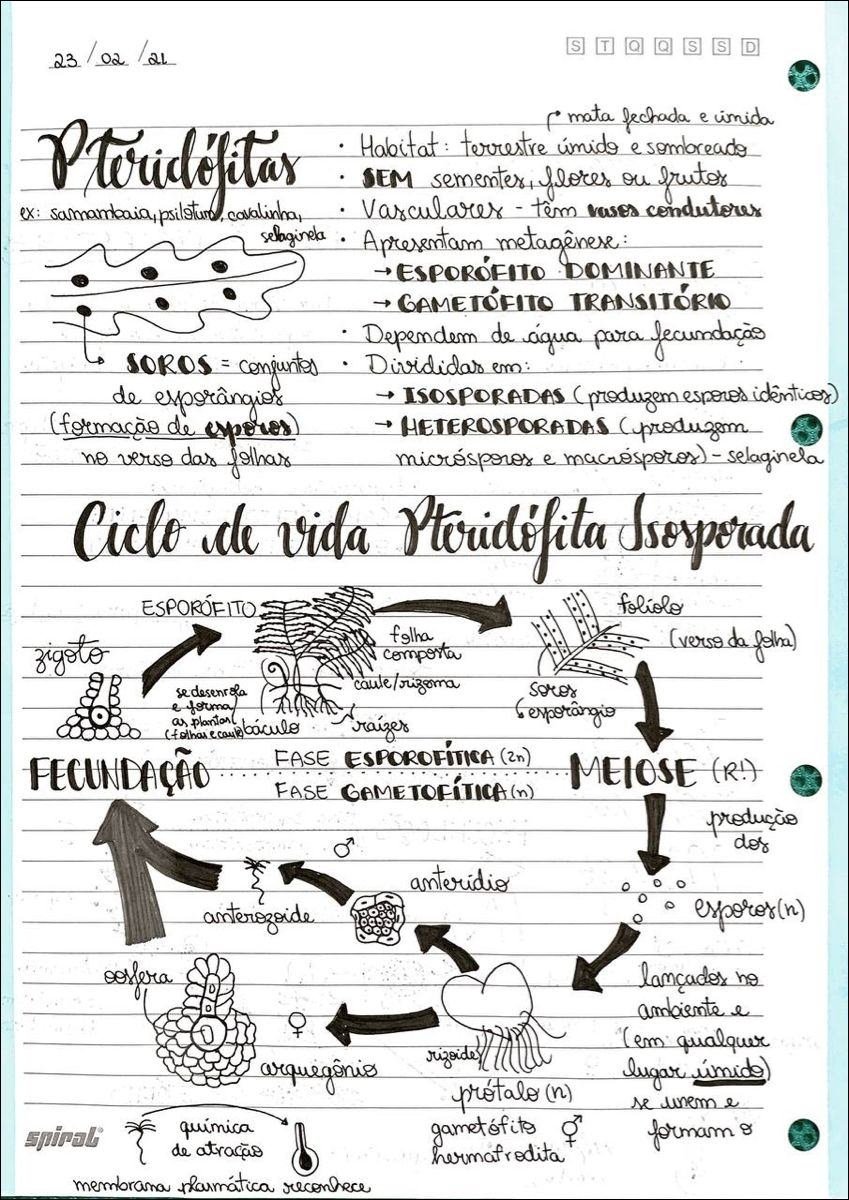 23/02/21
S T Q Q S S D
Pteridófitas
ex: samambaia, psilotum, cavalinha,
selaginela
SOROS = conjuntos
de esporângios
(formação de esporos)
no verso das folhas
mata fechada e úmida
· Habitat: terrestre úmido e sombreado
· SEM sementes, flores ou frutos
· Vasculares - têm vasos condutores
· Apresentam metagênese:
→ ESPORÓFITO DOMINANTE
→ GAMETÓFITO TRANSITÓRIO
· Dependem de água para fecundação
· Divididas em:
→ ISOSPORADAS (produzem esporos idênticos)
→ HETEROSPORADAS (produzem
micrósporos e macrósporos) - selaginela
Ciclo de vida Pteridófita Isosporada
ESPORÓFITO
zigoto
se desenrola
e forma
as plantas
(folhas e caule)
báculo
folha
composta
caule/rizoma
raízes
folíolo
(verso da folha)
soros
esporângio
FECUNDAÇÃO
FASE ESPOROFÍTICA (2n)
FASE GAMETOFÍTICA (n)
MEIOSE (R!)
produção
dos
esporos (n)
lançados no
ambiente e
(em qualquer
lugar úmido)
se unem e
formam o
♂
anterídio
anterozoide
oosfera
♀
arquegônio
rizoide
prótalo (n)
gametófito ⚥
hermafrodita
spiral
química
de atração
membrana plasmática reconhece